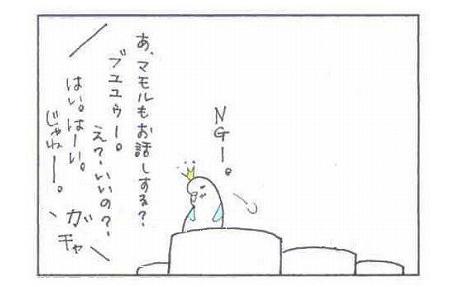 あ、マモルもお話しする?
ブユユウー。
え?いいの?
はい。はーい。
じゃねー。
ガチャ
NGー。